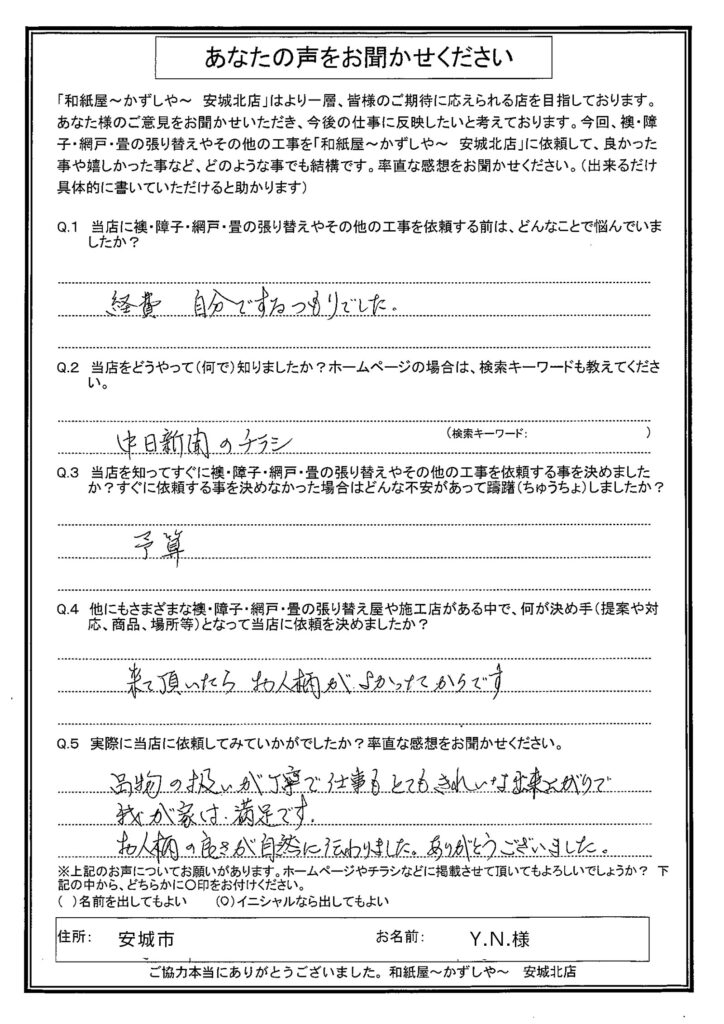 あなたの声をお聞かせください
「和紙屋～かずしや～　安城北店」はより一層、皆様のご期待に応えられる店を目指しております。
あなた様のご意見をお聞かせいただき、今後の仕事に反映したいと考えております。今回、襖・障
子・網戸・畳の張り替えやその他の工事を「和紙屋～かずしや～　安城北店」に依頼して、良かった
事や嬉しかった事など、どのような事でも結構です。率直な感想をお聞かせください。（出来るだけ
具体的に書いていただけると助かります）
Q.1　当店に襖・障子・網戸・畳の張り替えやその他の工事を依頼する前は、どんなことで悩んでいま
したか？
経費　自分でするつもりでした。
Q.2　当店をどうやって（何で）知りましたか？ホームページの場合は、検索キーワードも教えてくださ
い。
中日新聞のチラシ　（検索キーワード:　）
Q.3　当店を知ってすぐに襖・障子・網戸・畳の張り替えやその他の工事を依頼する事を決めました
か？すぐに依頼する事を決めなかった場合はどんな不安があって躊躇（ちゅうちょ）しましたか？
予算
Q.4　他にもさまざまな襖・障子・網戸・畳の張り替え屋や施工店がある中で、何が決め手（提案や対
応、商品、場所等）となって当店に依頼を決めましたか？
来て頂いたら　お人柄がよかってからです
Q.5　実際に当店に依頼してみていかがでしたか？率直な感想をお聞かせください。
品物の扱いが丁寧で仕事もとてもきれいな出来上がりで
我が家は満足です.
お人柄の良さが自然に伝わりました。ありがとうございました。
※上記のお声についてお願いがあります。ホームページやチラシなどに掲載させて頂いてもよろしいでしょうか？　下
記の中から、どちらかに〇印をお付けください。
（　）名前を出してもよい　（〇）イニシャルなら出してもよい
住所:　安城市　お名前:　Y.N.様
ご協力本当にありがとうございました。和紙屋～かずしや～　安城北店